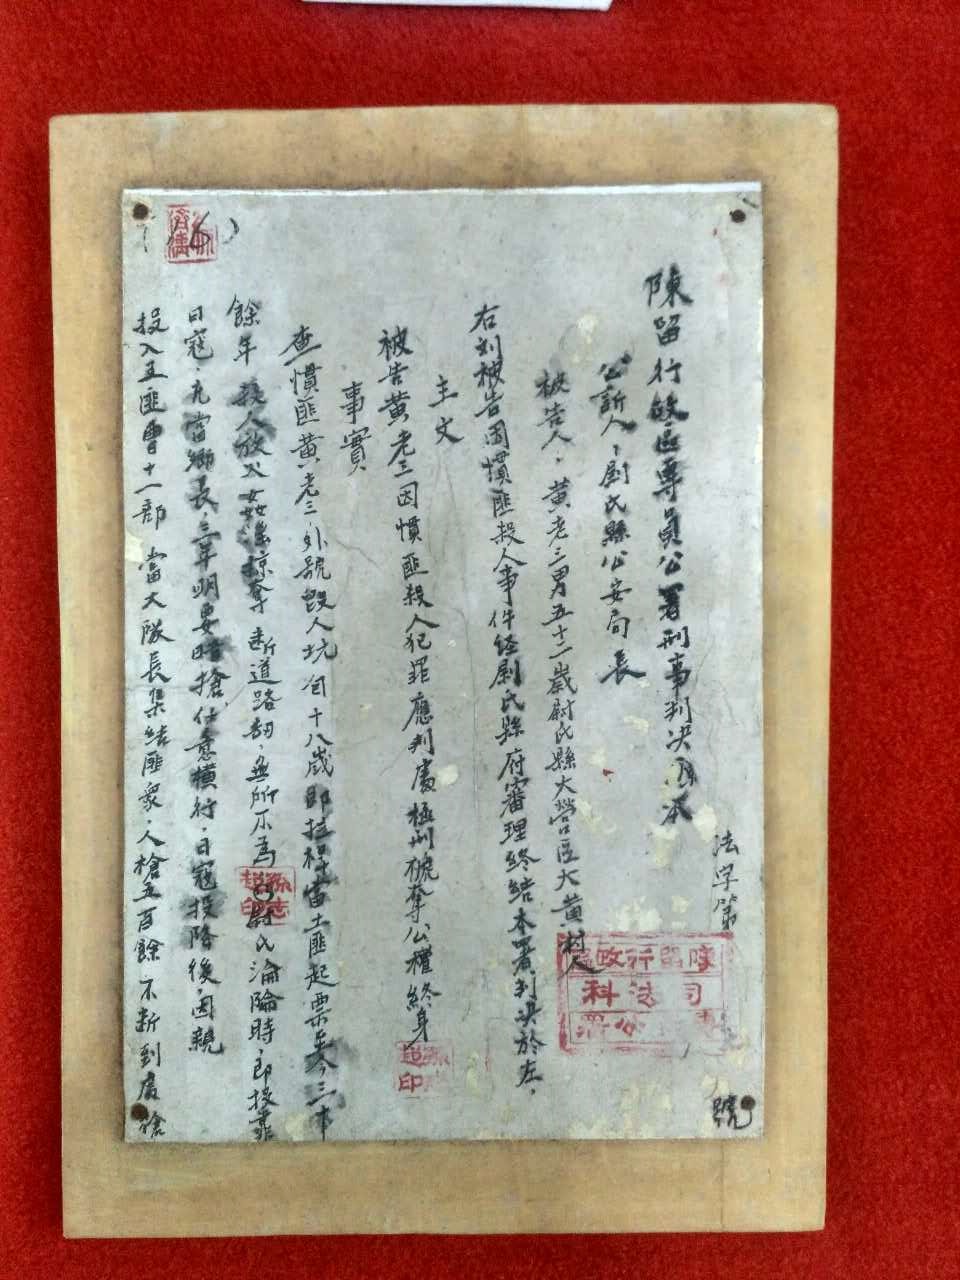 法字第 號
陳留行政區專員公署刑事判决
公訴人，尉氏縣公安局長
被告人，黄老三男五十二歲尉氏縣大營區大黄村人
右列被告因慣匪殺人事件经尉氏縣府審理終結本署判決於左，
主文
被告黄老三因慣匪殺人犯罪應判處極刑褫奪公權終身
事實
查慣匪黄老三，外號毀人坑自十八歲即拉桿當土匪起票至今三十
餘年 殺人放火姦淫掠奪 断道路刼，無所不為 尉氏淪陷時，即投靠
日寇，充當鄉長，三年明要暗搶，任意橫行，日寇投降後，因親
投入王匪曹十一部 當大隊長集结匪眾，人槍五百餘 不断到處搶
陳留行政區
專員公署
司法科
孫志超印